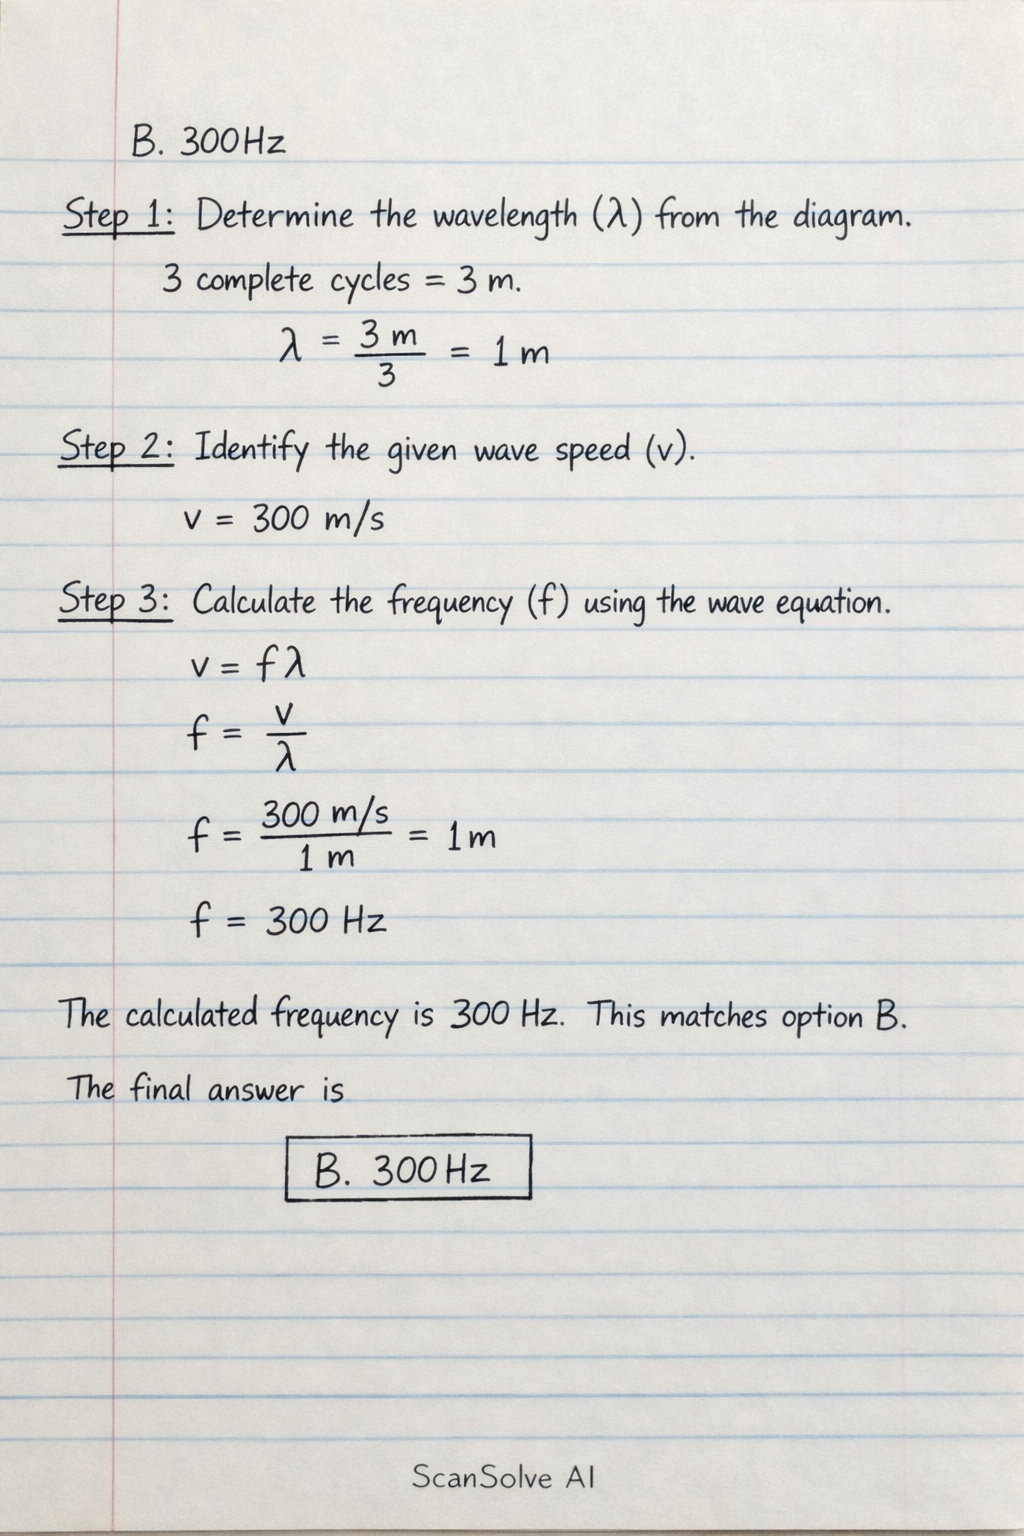 B. 300Hz
Step 1: Determine the wavelength (λ) from the diagram.
3 complete cycles = 3 m.
λ = 3 m / 3 = 1 m
Step 2: Identify the given wave speed (v).
v = 300 m/s
Step 3: Calculate the frequency (f) using the wave equation.
v = fλ
f = v / λ
f = 300 m/s / 1 m = 1m
f = 300 Hz
The calculated frequency is 300 Hz. This matches option B.
The final answer is
B. 300Hz
ScanSolve AI